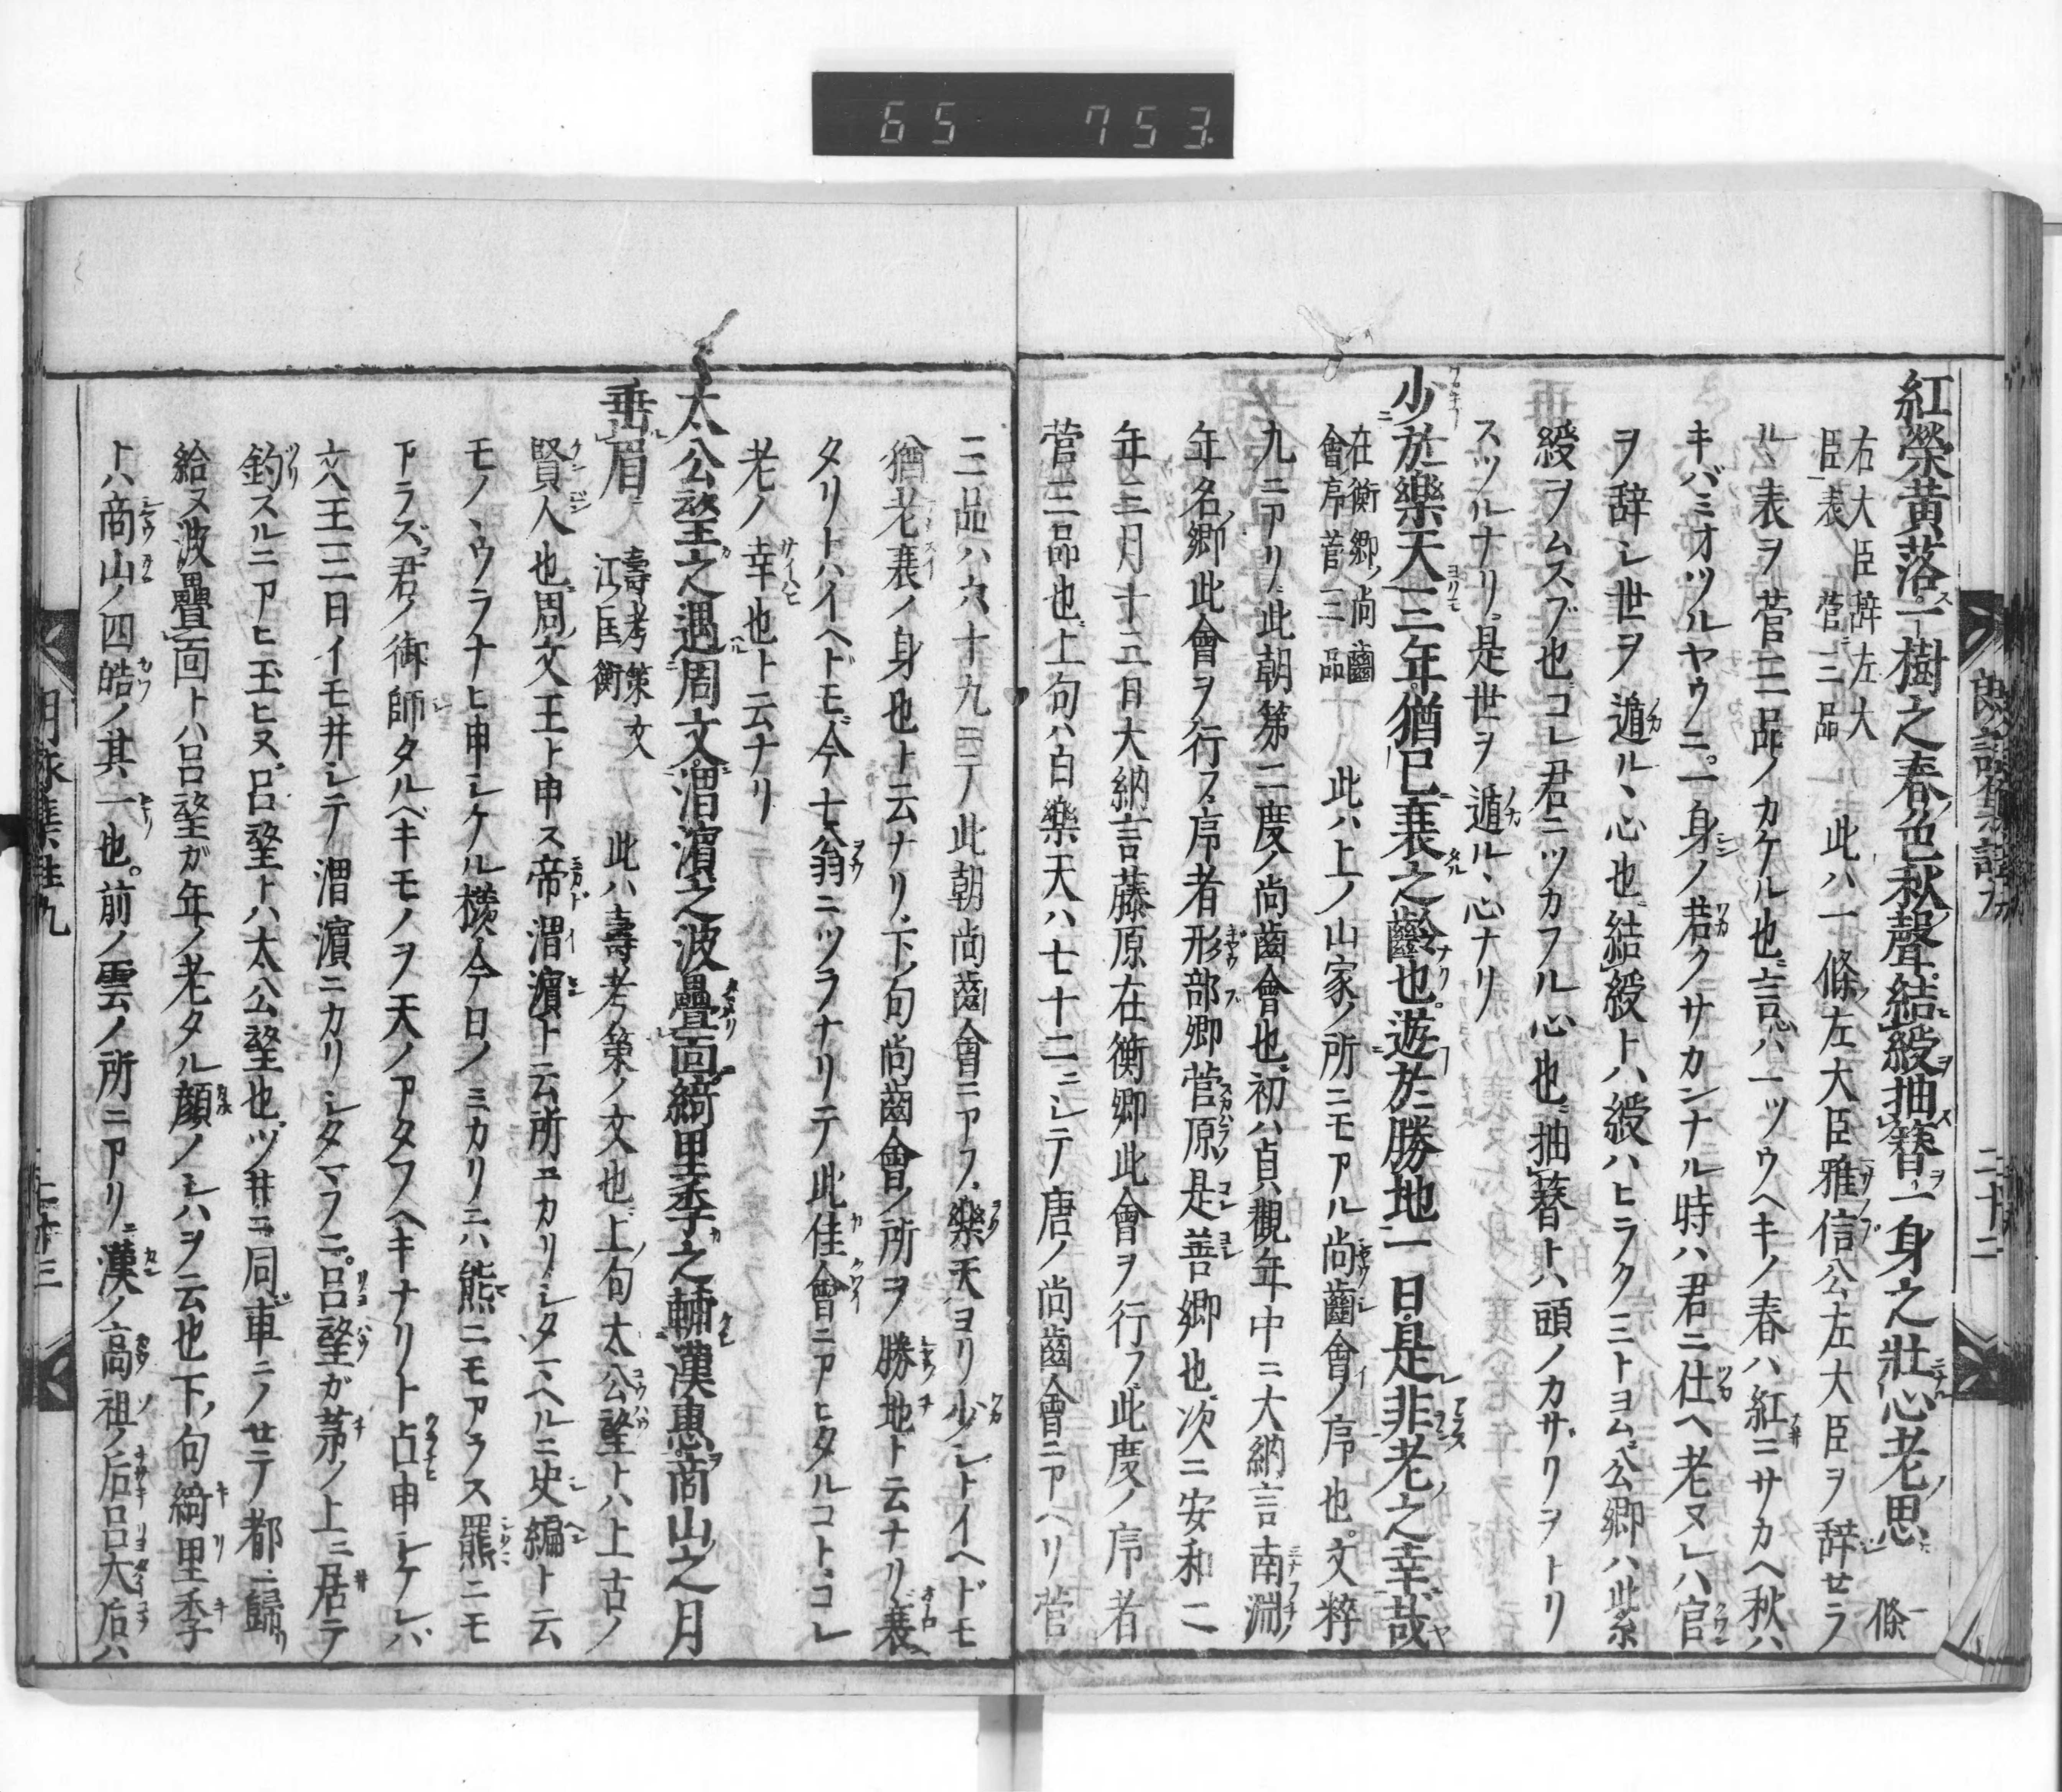 65 753
紅榮黄落一樹之春色秋聲結綬抽簪一身之壯心老思 一條
右大臣辞左大
臣表 菅三品
此ハ一條左大臣雅信公左大臣ヲ辞セラ
ルヽ表ヲ菅三品ノカケル也言心ハ一ツウヘキノ春ハ紅ニサカヘ秋ハ
キバミオツルヤウニ一身ノ若クサカンナル時ハ君ニ仕ヘ老ヌレハ官
ヲ辞レ世ヲ遁ルヽ心也結綬トハ綬ハヒラクミトヨム公卿ハ此糸
綬ヲムスブ也コレ君ニツカフル心也抽簪トハ頭ノカサリヲトリ
スツルナリ是世ヲ遁ルヽ心ナリ
少於樂天三年猶已衰之齡也遊於勝地一日是非老之幸哉
在衡卿尚齒
會序菅三品
此ハ上ノ山家ノ所ニモアル尚齒會ノ序也文粹
九ニアリ此朝第二度ノ尚齒會也初ハ貞觀年中ニ大納言南淵ノ
年名卿此會ヲ行フ序者形部卿菅原是善卿也次ニ安和二
年三月十三日大納言藤原在衡卿此會ヲ行フ此度ノ序者
菅三品也上句ハ白樂天ハ七十二ニシテ唐ノ尚齒會ニアヘリ菅
三品ハ六十九ニテ此朝尚齒會ニアフ樂天ヨリ少レトイヘドモ
猶老衰ノ身也ト云ナリ下句尚齒會ノ所ヲ勝地ト云ナリ衰
タリトハイヘドモ今七翁ニツラナリテ此佳會ニアヒタルコトコレ
老ノ幸也ト云ナリ
太公望之遇周文渭濱之波疊面綺里季之輔漢惠商山之月
垂眉 壽考策文
江匡衡
此ハ壽考策ノ文也上句太公望トハ上古ノ
賢人也周文王ト申ス帝渭濱ト云所ヱカリシタマヘルニ史編ト云
モノヽウラナヒ申シケル横今日ノミカリニハ熊ニモアラス羆ニモ
アラズ君ノ御師タルベキモノヲ天ノアタフヘキナリト占申シケレバ
文王三日イモ井シテ渭濱ニカリシタマフニ呂望ガ茅ノ上ニ居テ
釣スルニアヒ玉ヒヌ呂望トハ太公望也ツ井ニ同車ニノセテ都ニ歸リ
給ヌ波疊面トハ呂望ガ年ノ老タル顔ノシハヲ云也下句綺里季
トハ商山ノ四皓ノ其一也前ノ雲ノ所ニアリ漢ノ高祖ノ后呂大后ハ
二十二